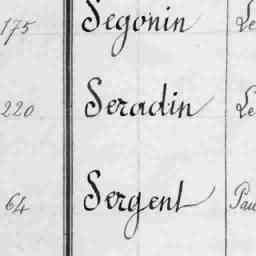 175 Segonin Le
220 Seradin Lé
64 Sergent Pau